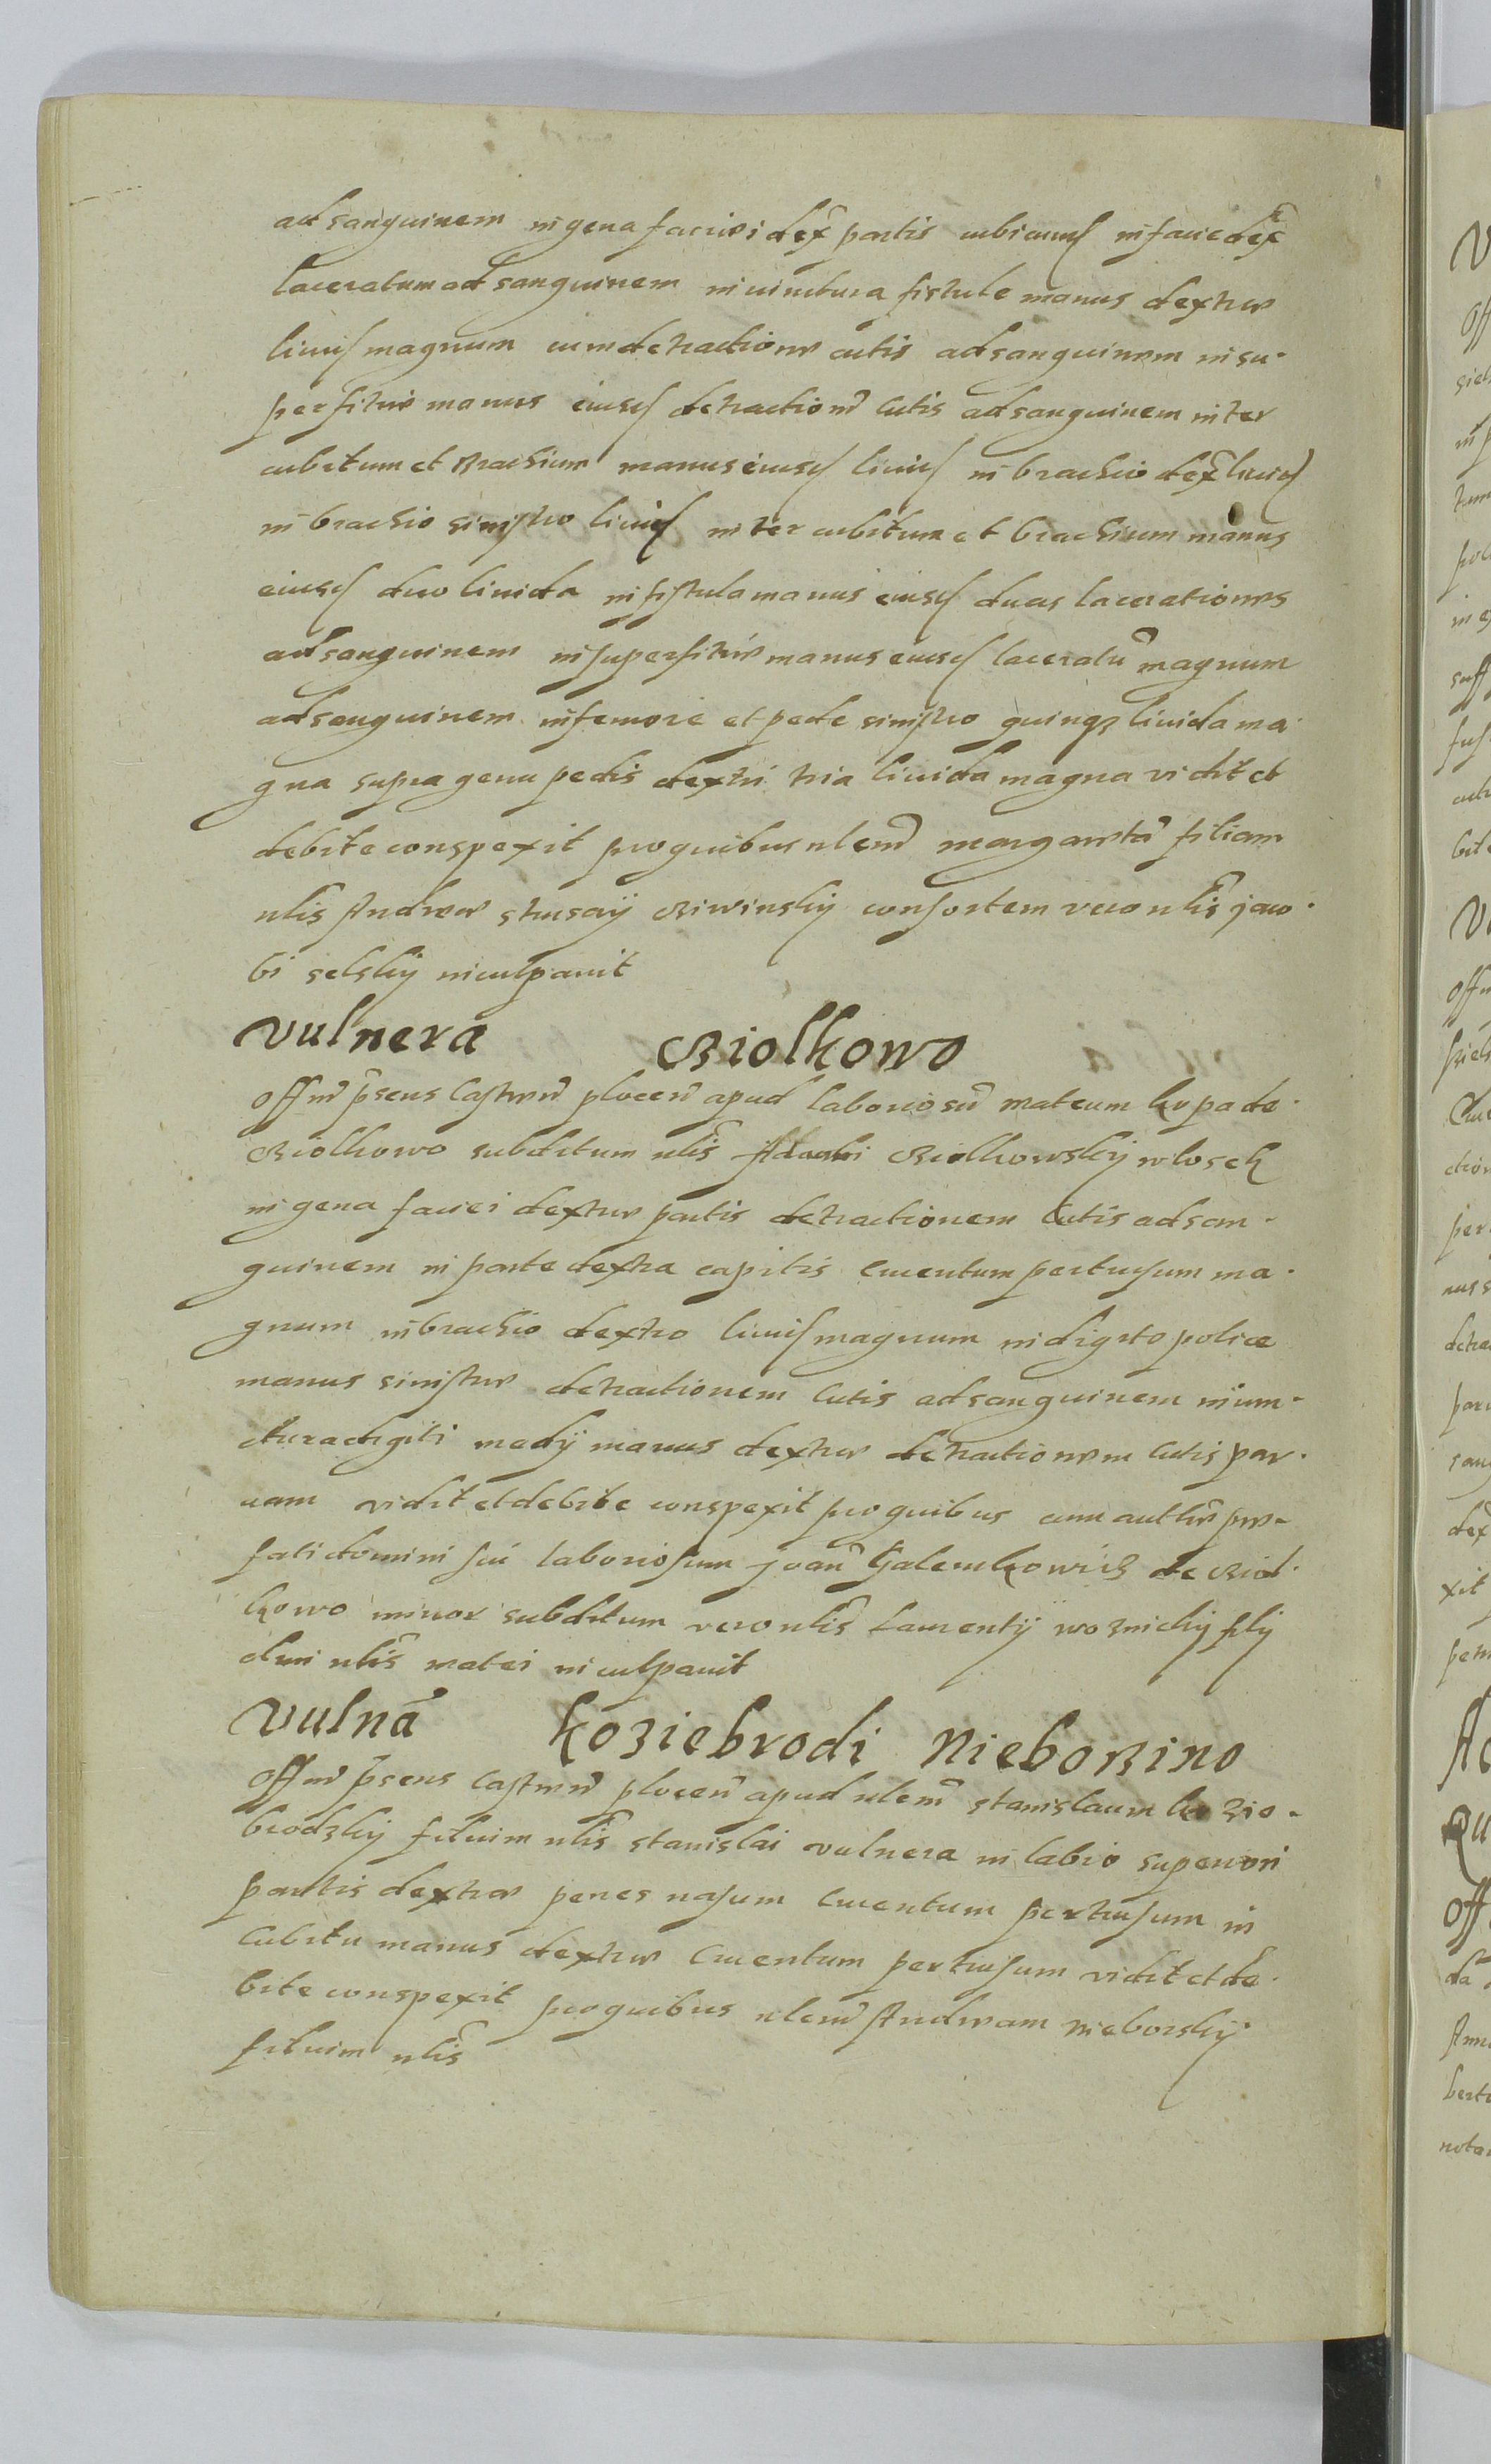 ad sanguinem in gena faciei dex partis rubicund in facie dex
laceratum ad sanguinem in iunctura fistule manus dextre
livid magnum cum detractione cutis ad sanguinem in su-
perficie manus eiusd detractione cutis ad sanguinem inter
cubitum et Brachium manus eiusd livid in brachio dex livid
in brachio sinistro livid inter cubitum et brachium manus
eiusd duo livida in fistula manus eiusd duas lacerationes
ad sanguinem in superficie manus eiusd laceratū magnum
ad sanguinem in femore et pede sinistro quinq livida ma-
gna supra genu pedis dextri tria livida magna vidit et
debite conspexit pro quibus nlem margaretā filiam
nlis Andree consortem vero nlis jaco-
bi selskÿ inculpavit
Vulnera Cziolkowo
Offm psens Castren plocen apud laboriosū mateum kopa de
Cziolkowo subditum nlis Adami Cziolkowskÿ
in gena faciei dextre partis detractionem Cutis ad san-
guinem in parte dextra capitis Cruentum pertusum ma-
gnum in brachio dextro livid magnum in digito police
manus sinistre detractionem Cutis ad sanguinem in iun-
ctura digiti medÿ manus dextre detractionem Cutis par-
vam vidit et debite conspexit pro quibus cum authte pre-
fati domini sui laboriosum joan Galemkowicz de Cziol-
kowo minor subditum vero nlis Laurentÿ woznickÿ filÿ
olim nlis matei inculpavit
Vulnā koziebrodi Nieborzino
Offm psens Castren plocen apud nlem stanislaum kozie-
brodzkÿ filium nlis stanislai vulnera in labio superiori
partis dextre penes nasum Cruentum pertusum in
Cubitu manus dextre Cruentum pertusum vidit et de-
bite conspexit pro quibus nlem Andream Nieborskÿ
filium nlis